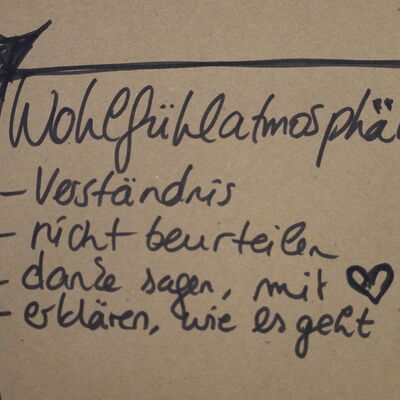 Wohlfühlatmosphä
- Verständnis
- nicht beurteilen
- danke sagen, mit ♥
- erklären, wie es geht